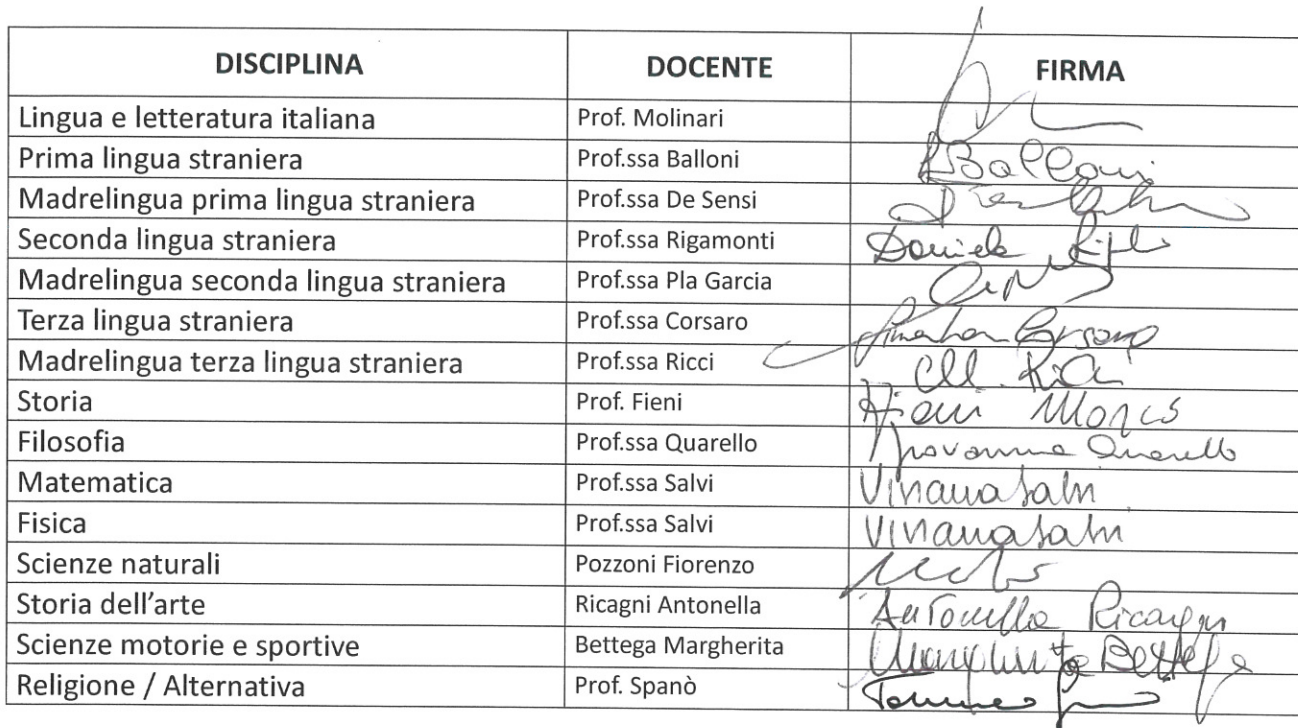 DISCIPLINA DOCENTE FIRMA
Lingua e letteratura italiana Prof. Molinari
Prima lingua straniera Prof.ssa Balloni Balloni
Madrelingua prima lingua straniera Prof.ssa De Sensi
Seconda lingua straniera Prof.ssa Rigamonti Daniela
Madrelingua seconda lingua straniera Prof.ssa Pla Garcia
Terza lingua straniera Prof.ssa Corsaro Corsaro
Madrelingua terza lingua straniera Prof.ssa Ricci
Storia Prof. Fieni Fieni Marco
Filosofia Prof.ssa Quarello Giovanna Quarello
Matematica Prof.ssa Salvi Viviana Salvi
Fisica Prof.ssa Salvi Viviana Salvi
Scienze naturali Pozzoni Fiorenzo
Storia dell'arte Ricagni Antonella Antonella Ricagni
Scienze motorie e sportive Bettega Margherita Margherita Bettega
Religione / Alternativa Prof. Spanò